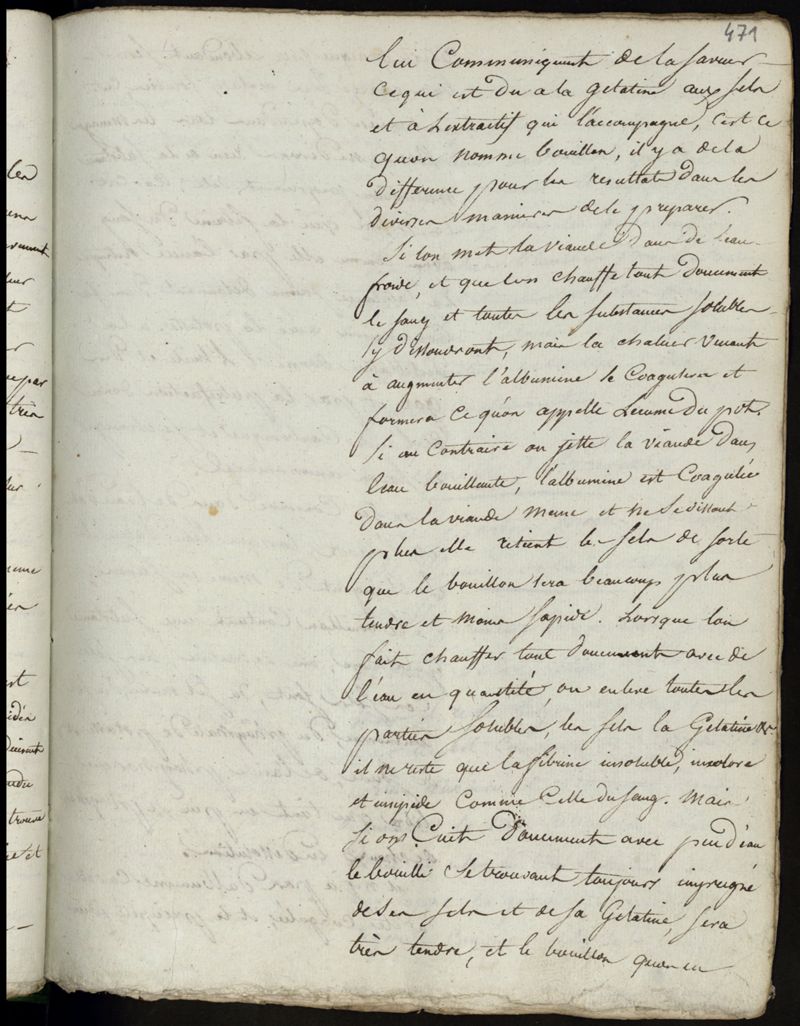 471
lui Communiquent de la saveur
ce qui est du a la gelatine aux sels
et à l'extractif qui l'accompagne, c'est ce
qu'on nomme bouillon, il y a de la
difference pour les resultats dans les
diverses manieres de le preparer.
Si l'on met la viande dans de l'eau
froide, et que l'on chauffe tout doucement
le sang et toutes les substances solubles
s'y dissoudront, mais la chaleur venant
à augmenter l'albumine se coagulera et
formera ce qu'on appelle l'ecume du pot.
Si au contraire on jette la viande dans
l'eau bouillante, l'albumine est coagulée
dans la viande meme et ne se dissout
plus elle retient les sels de sorte
que le bouillon sera beaucoup plus
tendre et moins sapide. Lorsque l'on
fait chauffer tout doucement avec de
l'eau en quantité, on enleve toutes les
parties solubles, les sels la Gelatine &c
il ne reste que la fibrine insoluble, inodore
et insipide comme celle du sang. Mais
Si on Cuit doucement avec peu d'eau
le bouilli se trouvant toujours impregné
de ses sels et de sa Gelatine, sera
très tendre, et le bouillon qu'on en